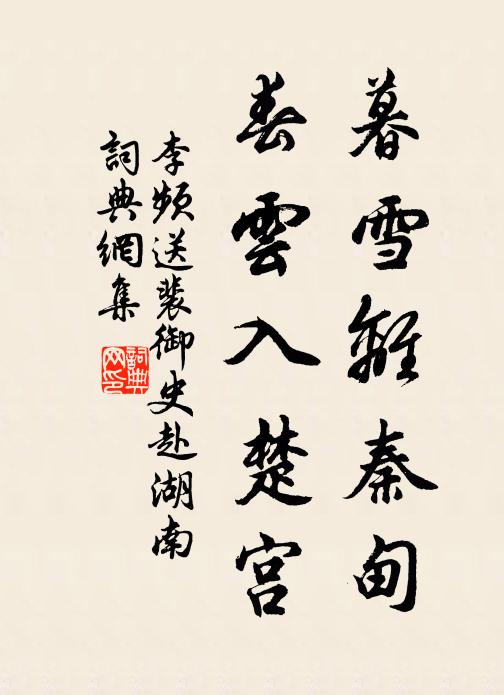 暮雪離秦甸
春雲入楚宮
李頻送裴御史赴湖南
詞典網集
詞典网印